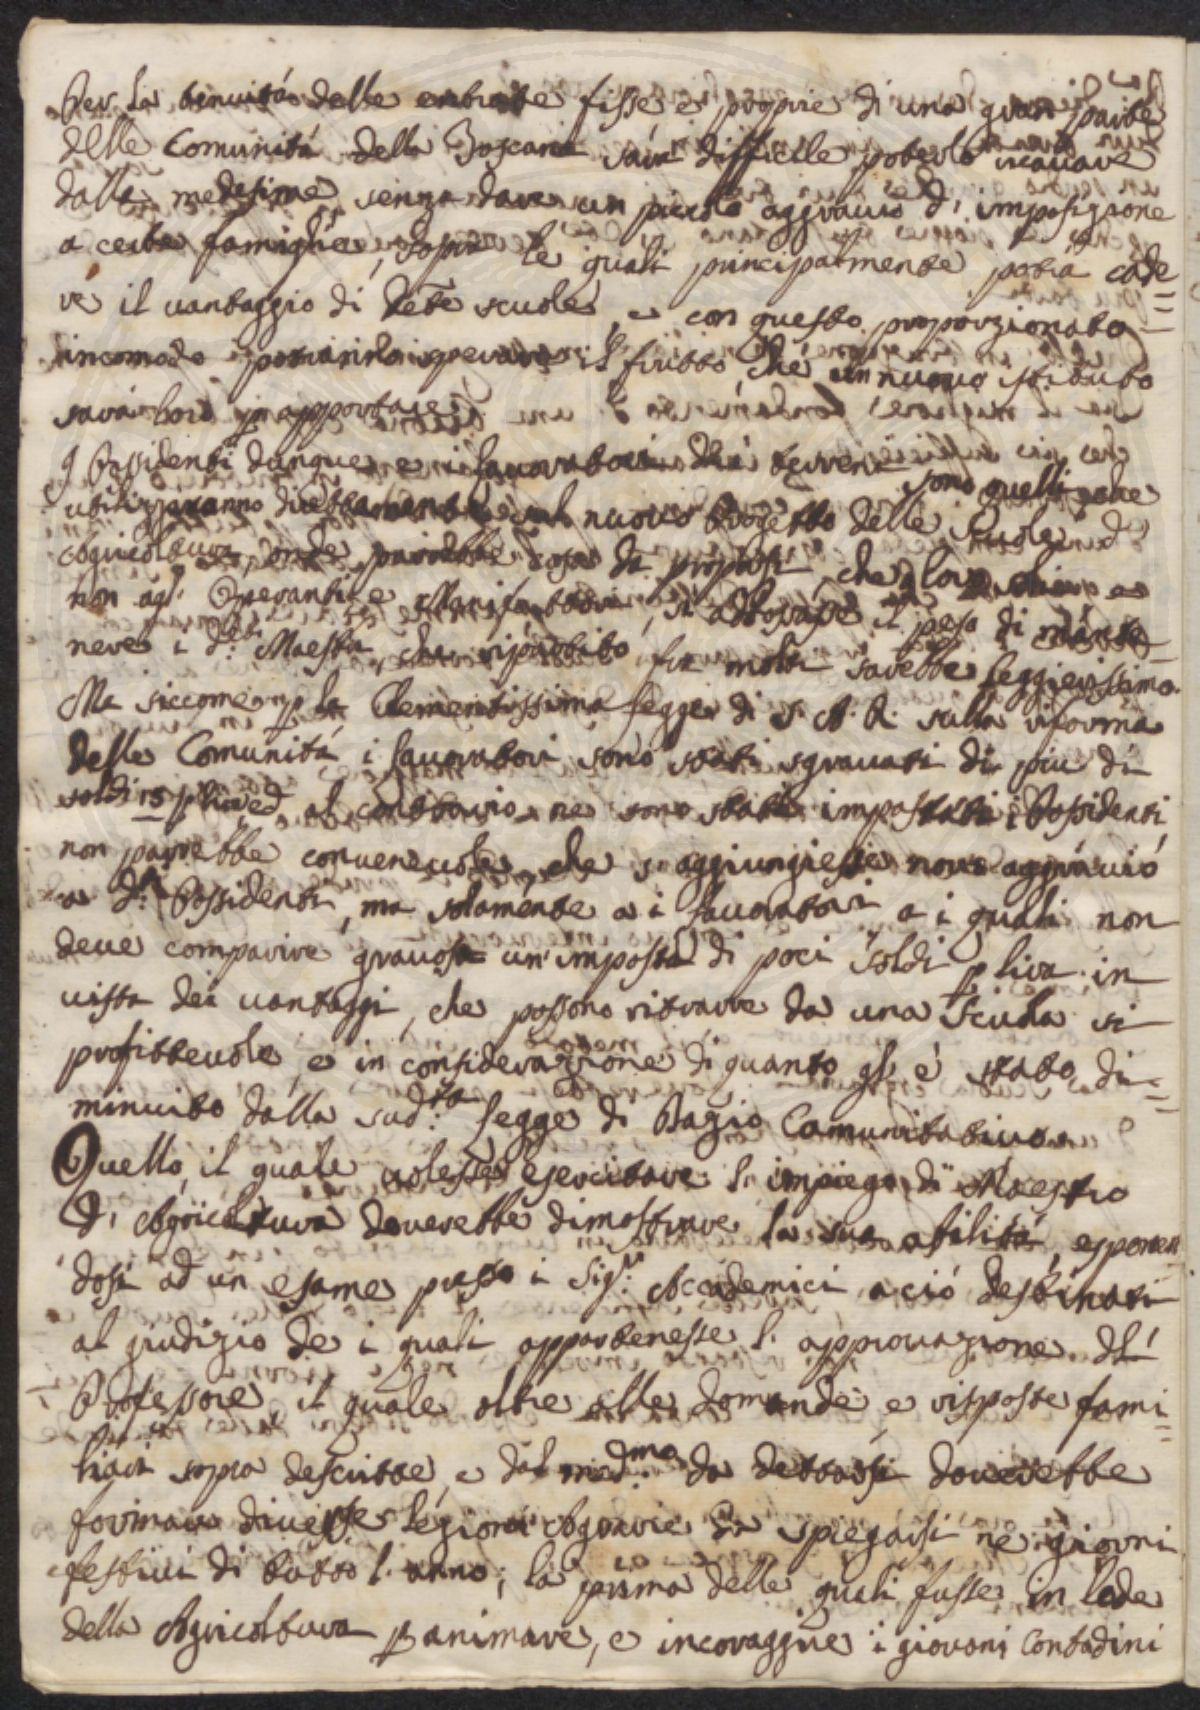 Per la tenuità delle entrate fisse e proprie di una gran parte
delle Comunità della Toscana sarà difficile poterlo ricavare
dalle medesime senza dare un piccolo aggravio di imposizione
a certe famiglie, sopra le quali principalmente potrà cade=
re il vantaggio di dette scuole, e con questo proporzionato
incomodo potranno sperare il frutto, che un nuovo istituto
sarà loro p apportare.
I Possidenti dunque e i lavoratori dei terreni sono quelli, che
utilizzeranno direttamente nel nuovo Progetto delle Scuole di
Agricoltura, onde parrebbe cosa da proporsi, che a loro, e
non agl' Operanti e Manifattori, si addossasse il peso di mante=
nere i d.i Maestri, che ripartito fra molti sarebbe leggierissimo.
Ma siccome p la Clementissima Legge di S. A. R. sulla riforma
delle Comunità i lavoratori sono stati sgravati di più di
soldi 15 p lira, ed al contrario ne sono stati impostati i Possidenti
non parrebbe convenevole, che si aggiungiesse novo aggravio
a d.i Possidenti, ma solamente a i lavoratori a i quali non
deve comparire gravosa un' imposta di poci soldi p lira in
vista dei vantaggi, che possono ritrarre da una Scuola si
profittevole, e in considerazione di quanto gli è stato di=
minuito dalla sud.ta Legge di Dazio Comunitativo.
Quello, il quale volesse esercitare l' impiego di Maestro
di Agricoltura doverebbe dimostrare la sua abilità, esponen
dosi ad un esame presso i Sig.ri Accademici a ciò destinati
al giudizio de i quali appartenesse l' approvazione del
Professore il quale oltre alle domande e risposte fami=
liari sopra descritte, e dal med.mo da dettarsi doverebbe
formare diverse lezioni Agrarie da spiegarsi ne giorni
festivi di tutto l' anno; la prima delle quali fusse in lode
della Agricoltura p animare, e incoraggire i giovani Contadini